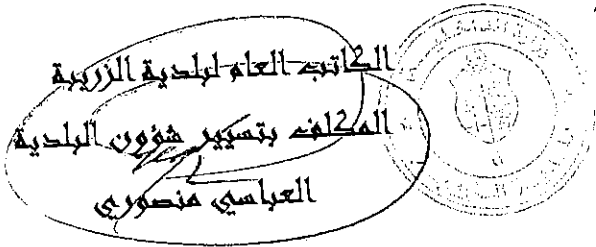 الكاتب العام لبلدية الزريبة
المكلف بتسيير شؤون البلدية
العباسي منصوري